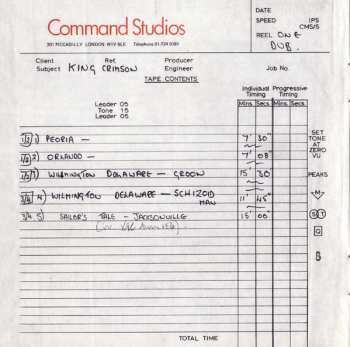 Command Studios
201 PICCADILLY LONDON W1V 9LE Telephone 01-734 0181
DATE
SPEED IPS
CMS/S
REEL ONE
DUB.
Client Ref. Producer
Subject KING CRIMSON Engineer Job No.
TAPE CONTENTS
Individual Timing Progressive Timing
Leader 05
Tone 15
Leader 05
Mins. Secs. Mins. Secs.
1) PEORIA — 7' 30"
2) ORLANDO — 7' 08"
WILMINGTON DELAWARE — GROON 15' 30"
4) WILMINGTON DELAWARE — SCHIZOID MAN 11' 45"
3/4 5) SAILOR'S TALE — JACKSONVILLE 15' 00"
SET
TONE
AT
ZERO
VU
PEAKS
M
S T
TOTAL TIME